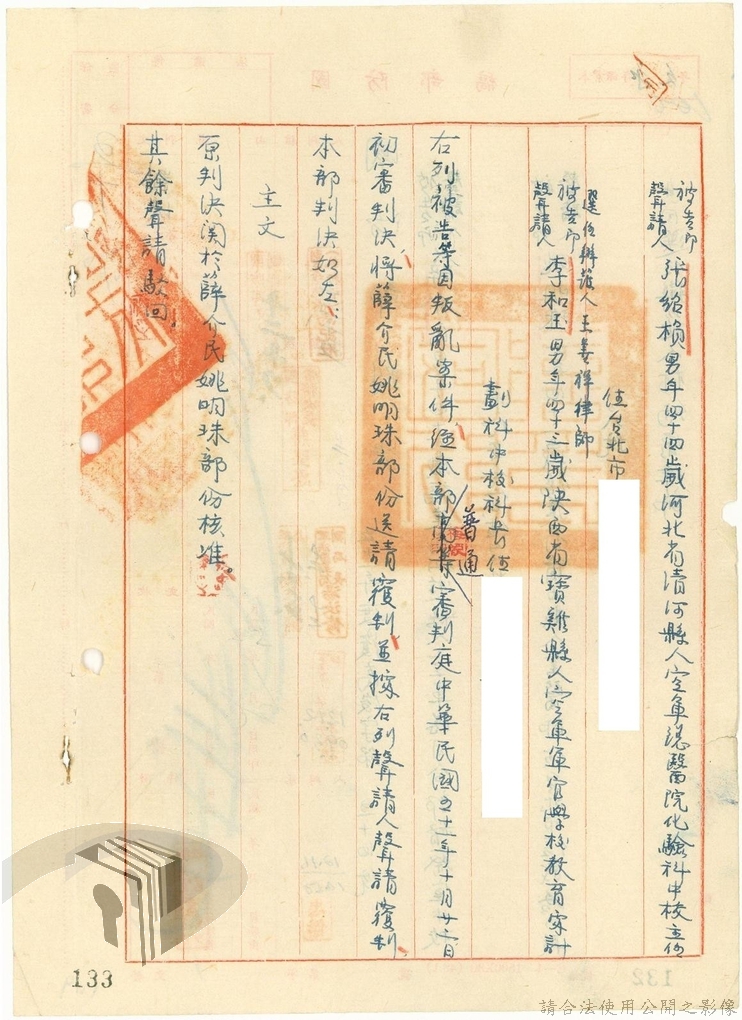 被告即
聲請人
張紹楨男年四十四歲河北省清河縣人空軍總醫院化驗科中校主任
住台北市
選任辯護人王善祥律師
被告即
聲請人
李和玉男年四十三歲陝西省寶雞縣人空軍軍官學校教育處計
劃科中校科長住
右列被告等因叛亂案件經本部普通審判庭中華民國五十一年十月廿二日
初審判決將薛介民姚明珠部份送請覆判並據右列聲請人聲請覆判
本部判決如左：
主文
原判決關於薛介民姚明珠部份核准。
其餘聲請駁回。
133
請合法使用公開之影像